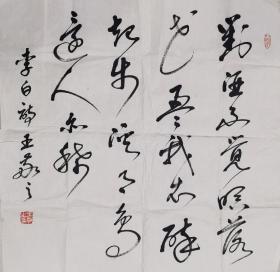 對酒不覺暝落
花盈我衣醉
起步溪月鳥
還人亦稀
李白詩王